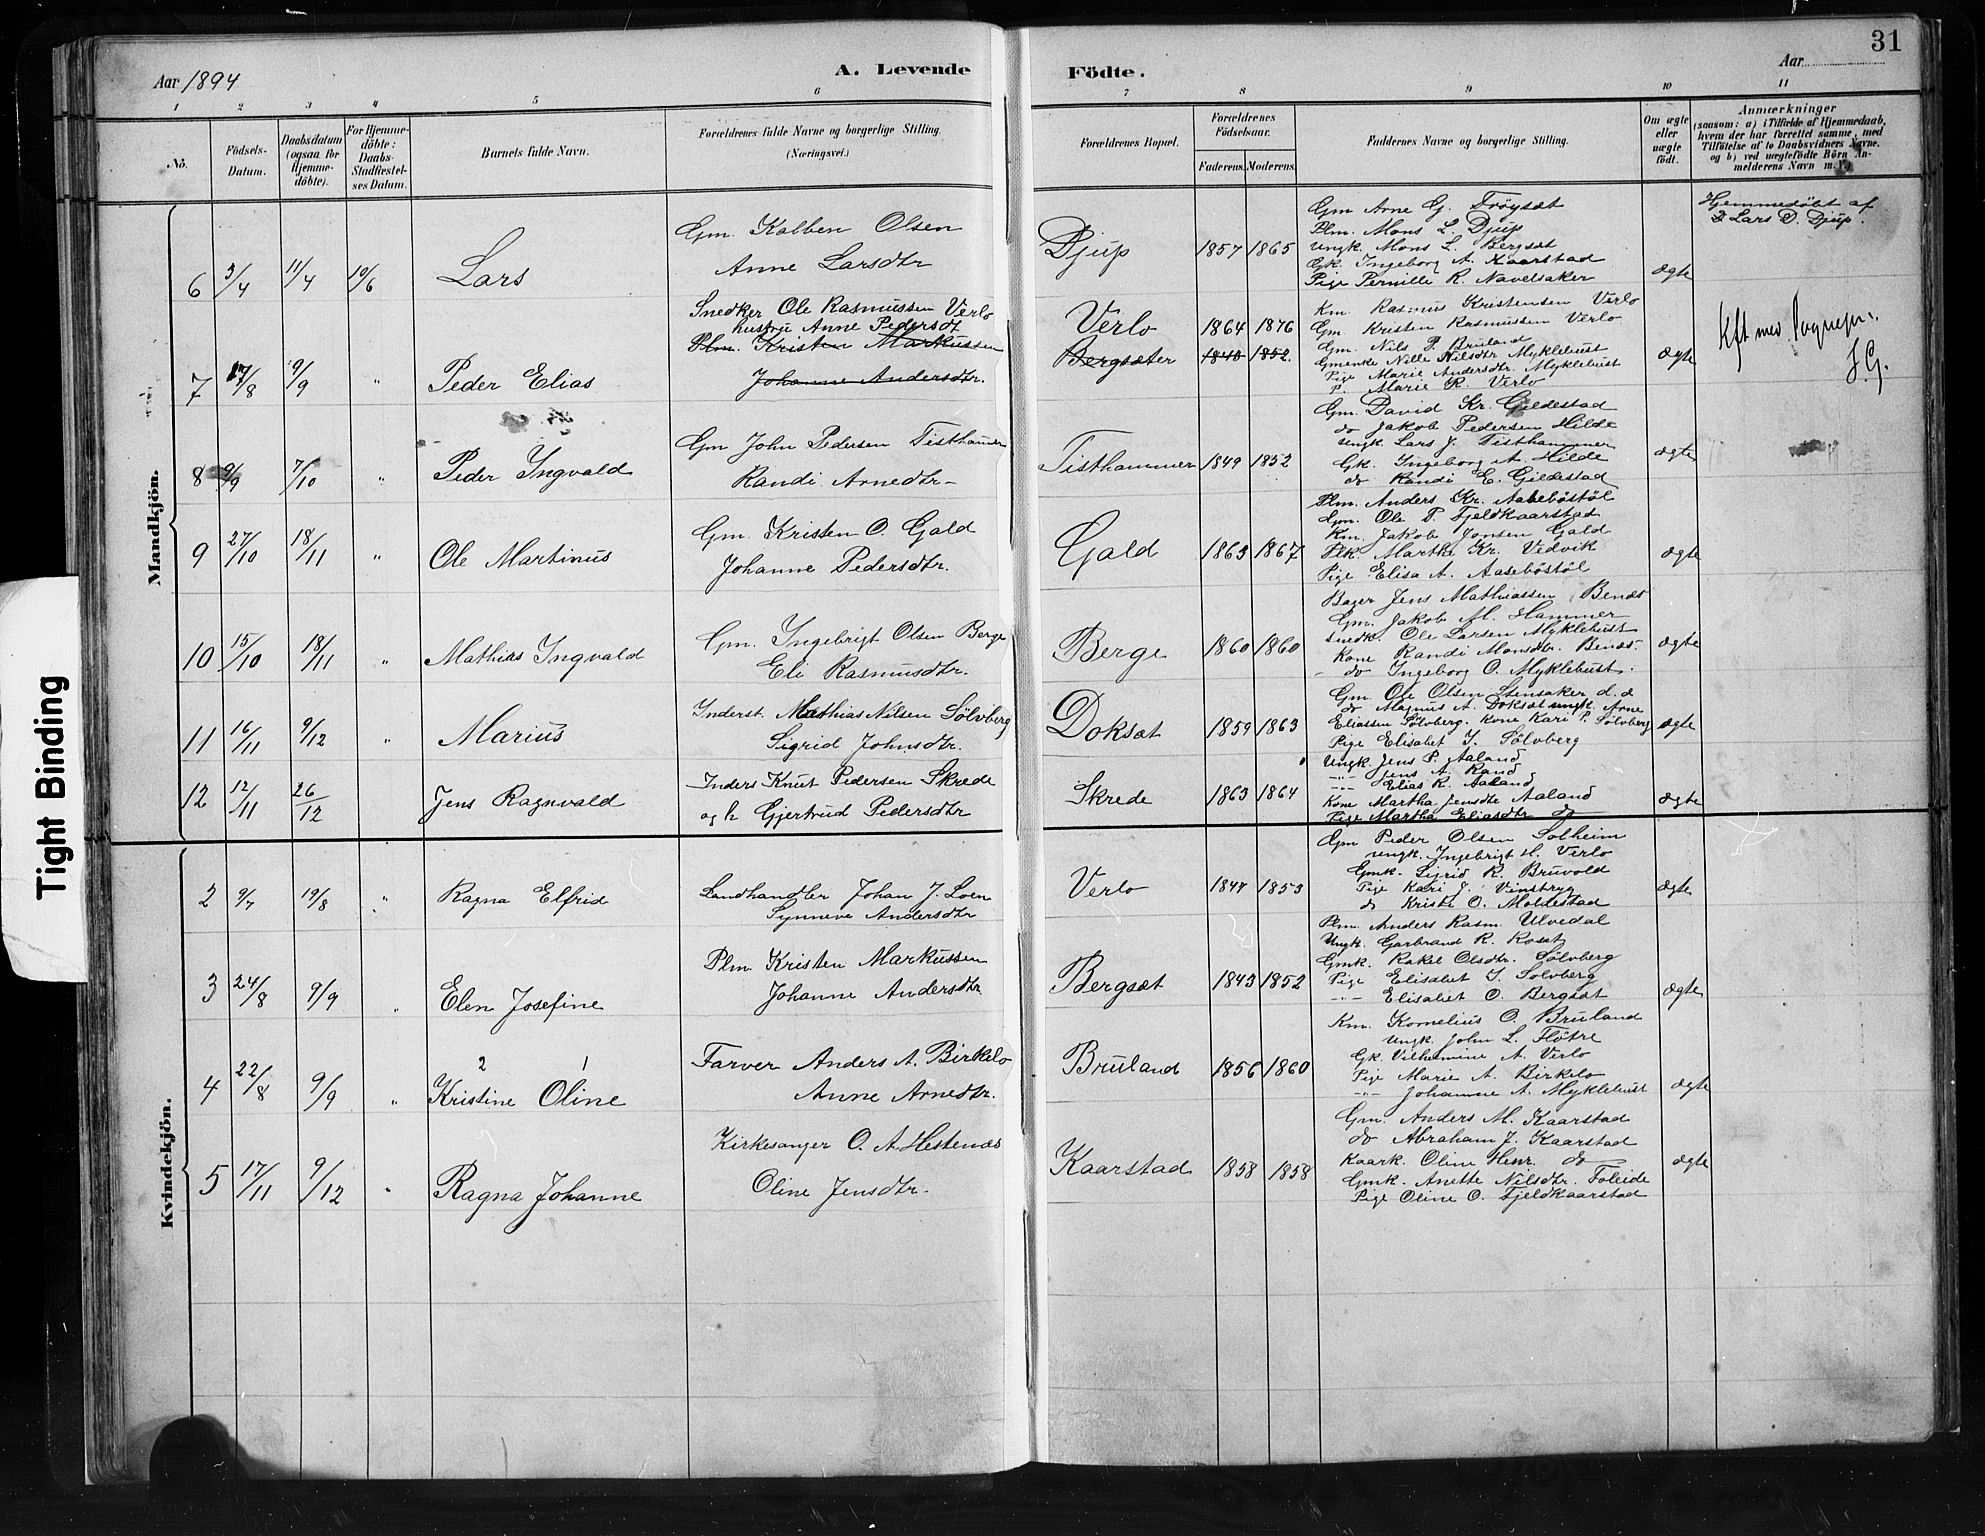 31
Aar 1894
A. Levende Födte.
Aar
1 2 3 4 5 6 7 8 9 10 11
No.
Födsels-Datum.
Daabsdatum (ogsaa for Hjemmedöbte).
For Hjemmedöbte: Daabs-Stadfestelses Datum.
Barnets fulde Navn.
Forældrenes fulde Navne og borgerlige Stilling. (Næringsvei.)
Forældrenes Bopæl.
Forældrenes Födselsaar.
Faderens. Moderens.
Faddernes Navne og borgerlige Stilling.
Om ægte eller uægte födt.
Anmærkninger
(saasom: a) i Tilfælde af Hjemmedaab,
hvem der har forrettet samme, med
Tilföielse af to Daabsvidners Navne.
og b) ved uægtefödte Börn An-
melderens Navn m. V.)
Mandkjön.
6 3/4 11/4 10/6 Lars
Gm. Kolben Olsen
Anne Larsdtr
Djup 1857 1865
Gm Arne G. Fröysæt
Plm. Mons L. Djup
Ungk. Mons L. Bergsæt
Gk. Ingeborg A. Kaarstad
Pige Pernille R. Navelsaker
ægte
Hjemmedöbt af
Lars D. Djup.
7 17/8 9/9 " Peder Elias
Snedker Ole Rasmussen Verlo
hustru Anne Pedersdt
Plm. Kristen Markussen
Johanne Andersdtr.
Verlo 1864 1876
Bergsæter 1843 1852.
Km Rasmus Kristensen Verlo
Gm. Kristen Rasmussen Verlo
Gm. Nils P. Bruland
Gmenke Nille Nilsdtr Myklebust
Pige Marie Andersdtr. Myklebust
P. Marie R. Verlo
ægte
Kft med Sognepr.
J.G.
8 9/9 7/10 " Peder Ingvald
Gm John Pedersen Tisthamer
Randi Arnedtr
Tisthammer 1849 1852
Gm. David Kr. Gildestad
do Jakob Pedersen Hilde
ungk. Lars J. Tisthammer
Gk. Ingeborg A. Hilde
do Randi E. Gildestad
ægte
9 27/10 18/11 " Ole Martinus
Gm. Kristen O. Gald
Johanne Pedersdtr.
Gald 1863 1867
Plm. Anders Kr. Aaseböstöl
Gm. Ole P. Fjeldkaarstad
Km. Jakob Jonsen Gald
Plk Martha Kr. Vedvik
Pige Elisa A. Aaseböstöl
ægte
10 15/10 18/11 " Mathias Ingvald
Gm. Ingebrigt Olsen Berge
Eli Rasmusdtr.
Berge 1860 1860
Bager Jens Mathiassen Benes
Gm. Jakob M. Hammer
Snedk. Ole Larsen Myklebust
Kone Randi Monsdtr. Benes
do Ingeborg O. Myklebust.
ægte
11 16/11 9/12 " Marius
Inderst. Mathias Nilsen Sölvberg
Sigrid Johnsdtr.
Doksæt 1859 1863
Gm. Ole Olsen Stensaker d. æ
do Magnus A. Doksæt ungk. Arne
Eliassen Sölvberg. Kone Kari P. Sölvberg
Pige Elisabet I. Sölvberg
ægte
12 12/11 26/12 Jens Ragnvald
Inders Knut Pedersen Skrede
og h Gjertrud Pedersdtr
Skrede 1863 1864
Ungk Jens P. Aaland
-"- Jens A. Rand
-"- Elias R. Aaland
Kone Martha Jensdtr Aaland
Pige Martha Eliasdtr do
ægte
Kvindekjön.
2 9/7 19/8 " Ragna Elfrid
Landhandler Johan J. Loen
Synneve Andersdtr
Verlo 1847 1853
Gm Peder Olsen Solheim
ungk. Ingebrigt H. Verlo
Gmk. Sigrid R. Bruvold
Pige Kari J. Vinstryg
do Kristi O. Moldestad
ægte
3 24/8 9/9 " Elen Josefine
Plm. Kristen Markussen
Johanne Andersdtr
Bergsæt 1843 1852
Plm. Anders Rasm. Ulvedal
Ungk. Garbrand R. Rosæt
Gmk. Rakel Olsdtr. Sölvberg
Pige Elisabet I. Solvberg
-"- Elisabet O. Bergsæt
ægte
4 22/8 9/9 " Kristine Oline
2 1
Farver Anders A. Birkelo
Anne Arnedtr.
Bruland 1856 1860
Km. Kornelius O. Bruland
Ungk. John L. Flötre
Gk. Vilhelmine A. Verlo
Pige Marie A. Birkelo
-"- Johanne A. Myklebust
ægte
5 17/11 9/12 " Ragna Johanne
Kirkesanger O. A. Hestenæs
Oline Jensdtr.
Kaarstad 1858 1858
Gm. Anders M. Kaarstad
do Abraham J. Kaarstad
Kaark. Oline Henr. do
Gmk. Anette Nilsdtr. Foleide
Pige Oline O. Fjeldkaarstad
ægte
Tight Binding